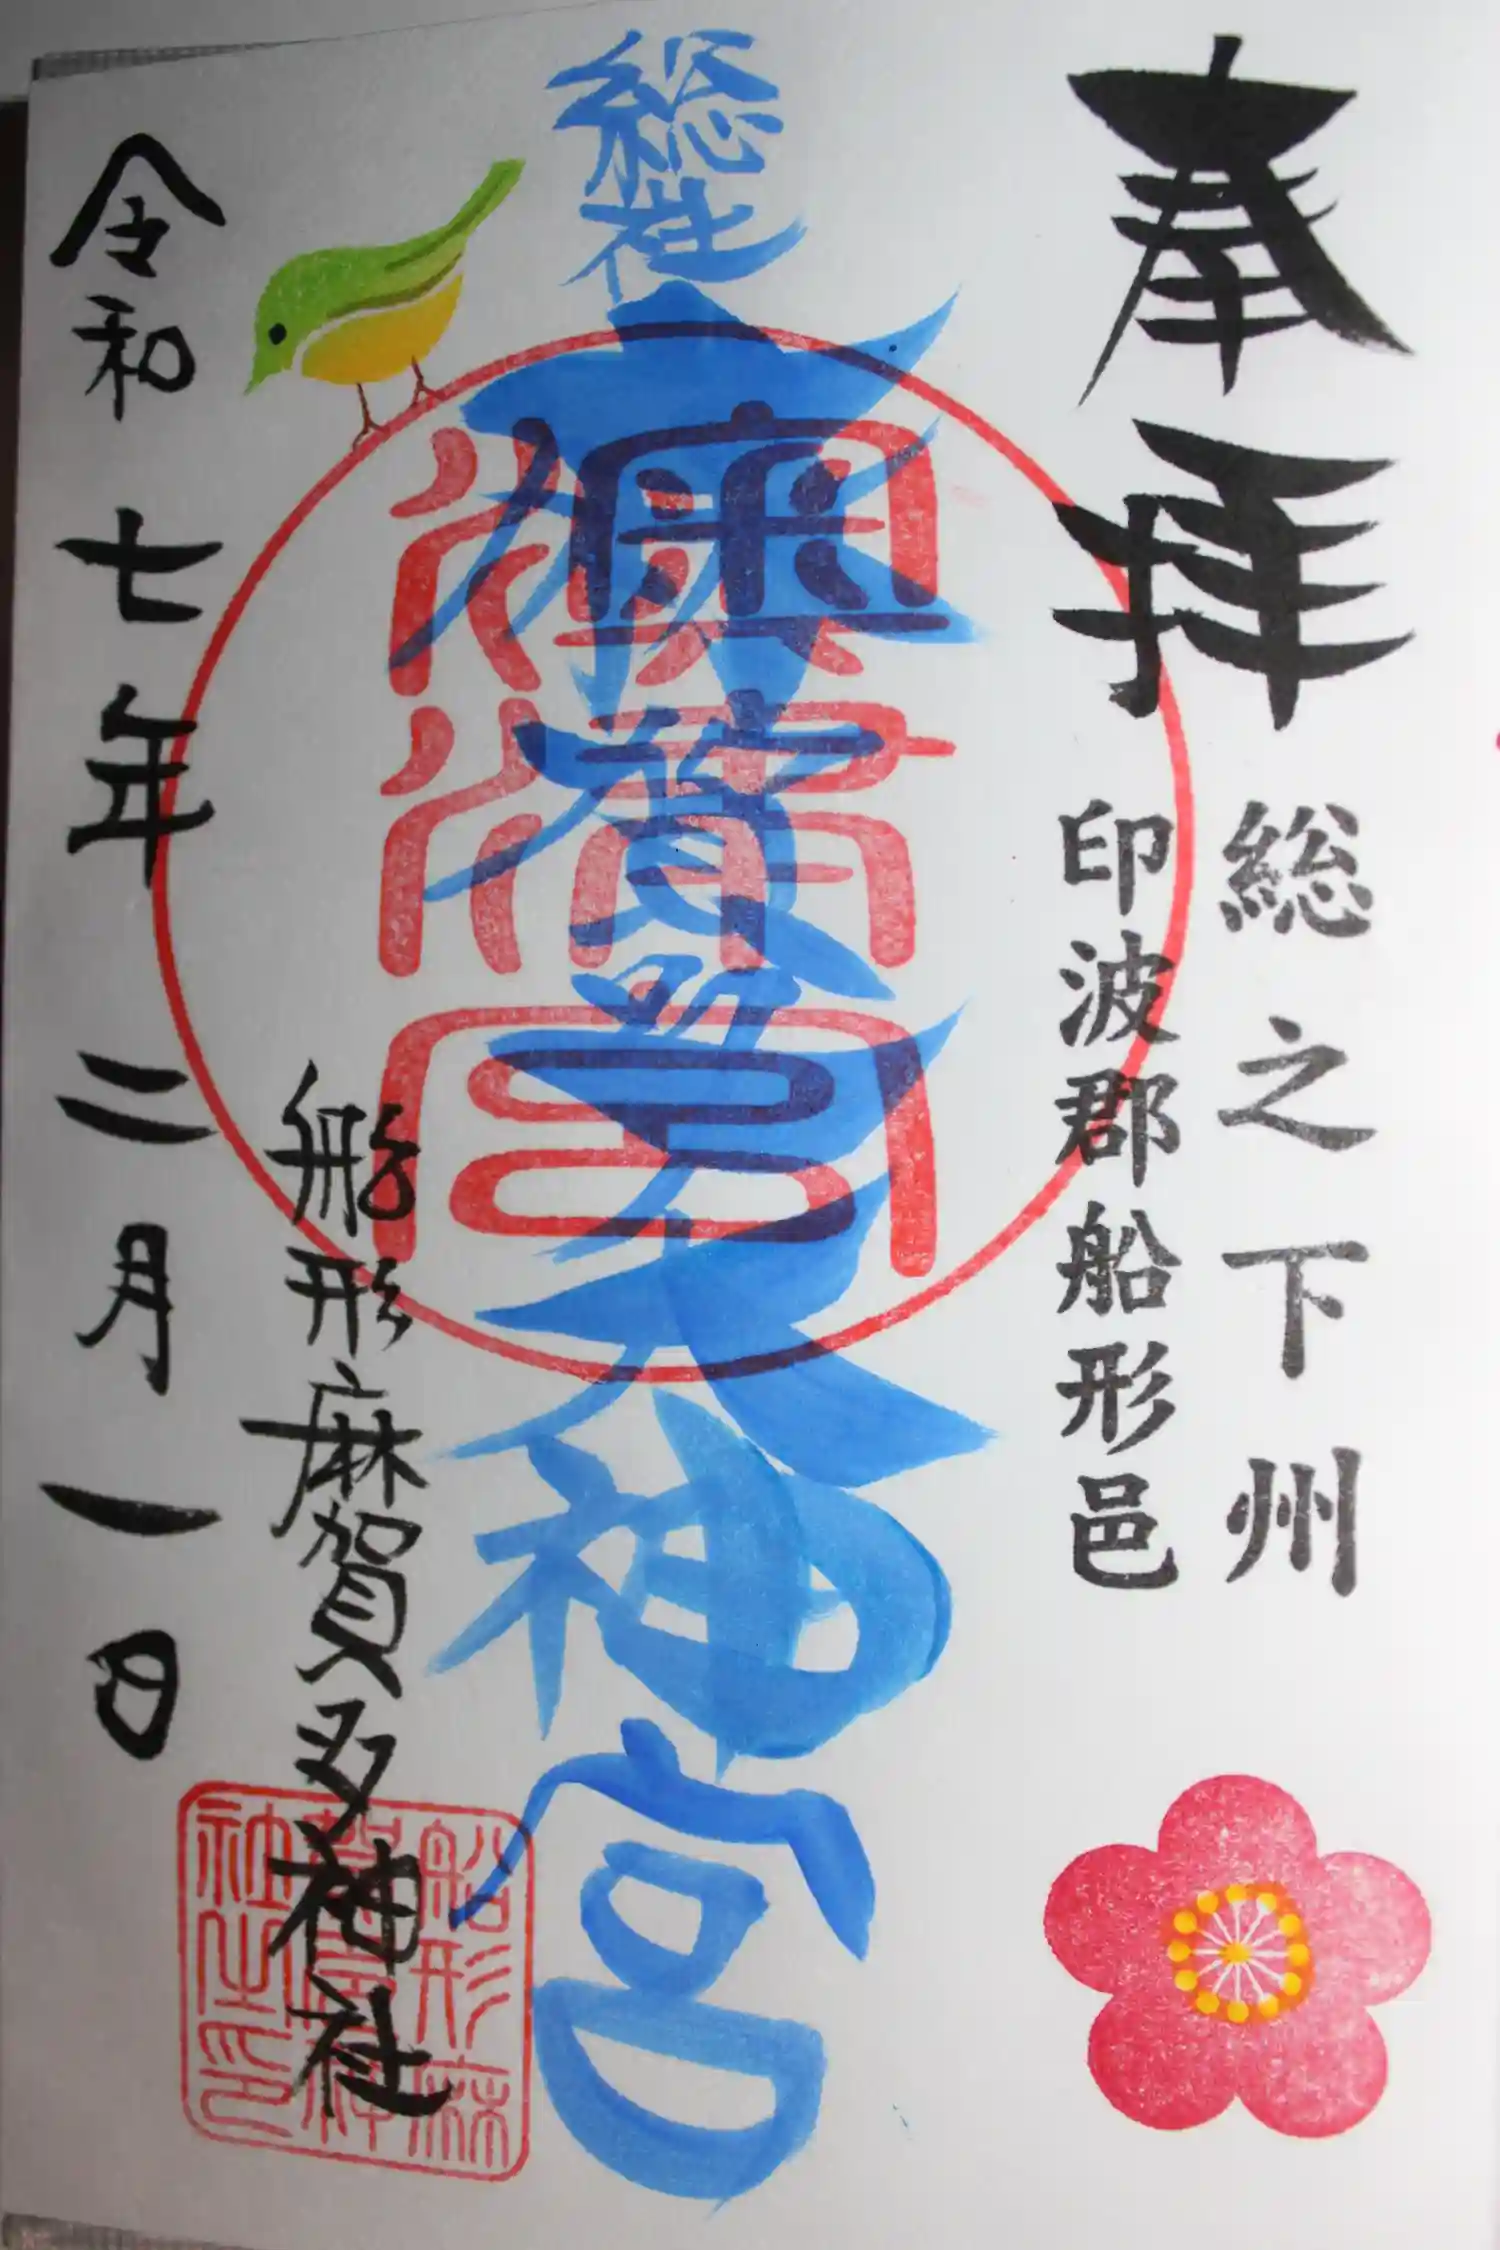 奉拝
総之下州
印波郡船形邑
総社
麻賀多大神宮
船形麻賀多神社
令和七年二月一日
船形麻賀多神社之印